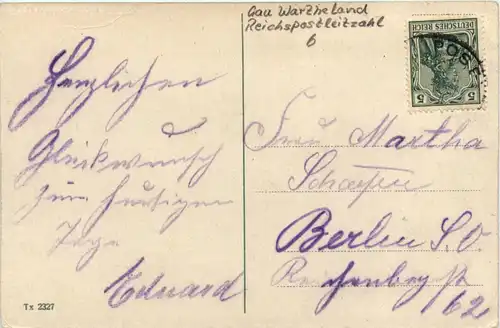 Gau Wartheland
Reichspostleitzahl
6
DEUTSCHES REICH
5 5
POSE
Herzlichen
Glückwunsch
zum heutigen
Tage
Eduard
Frau Martha
Schäfer
Berlin S.O.
Reichenberger St
62
Tx 2327